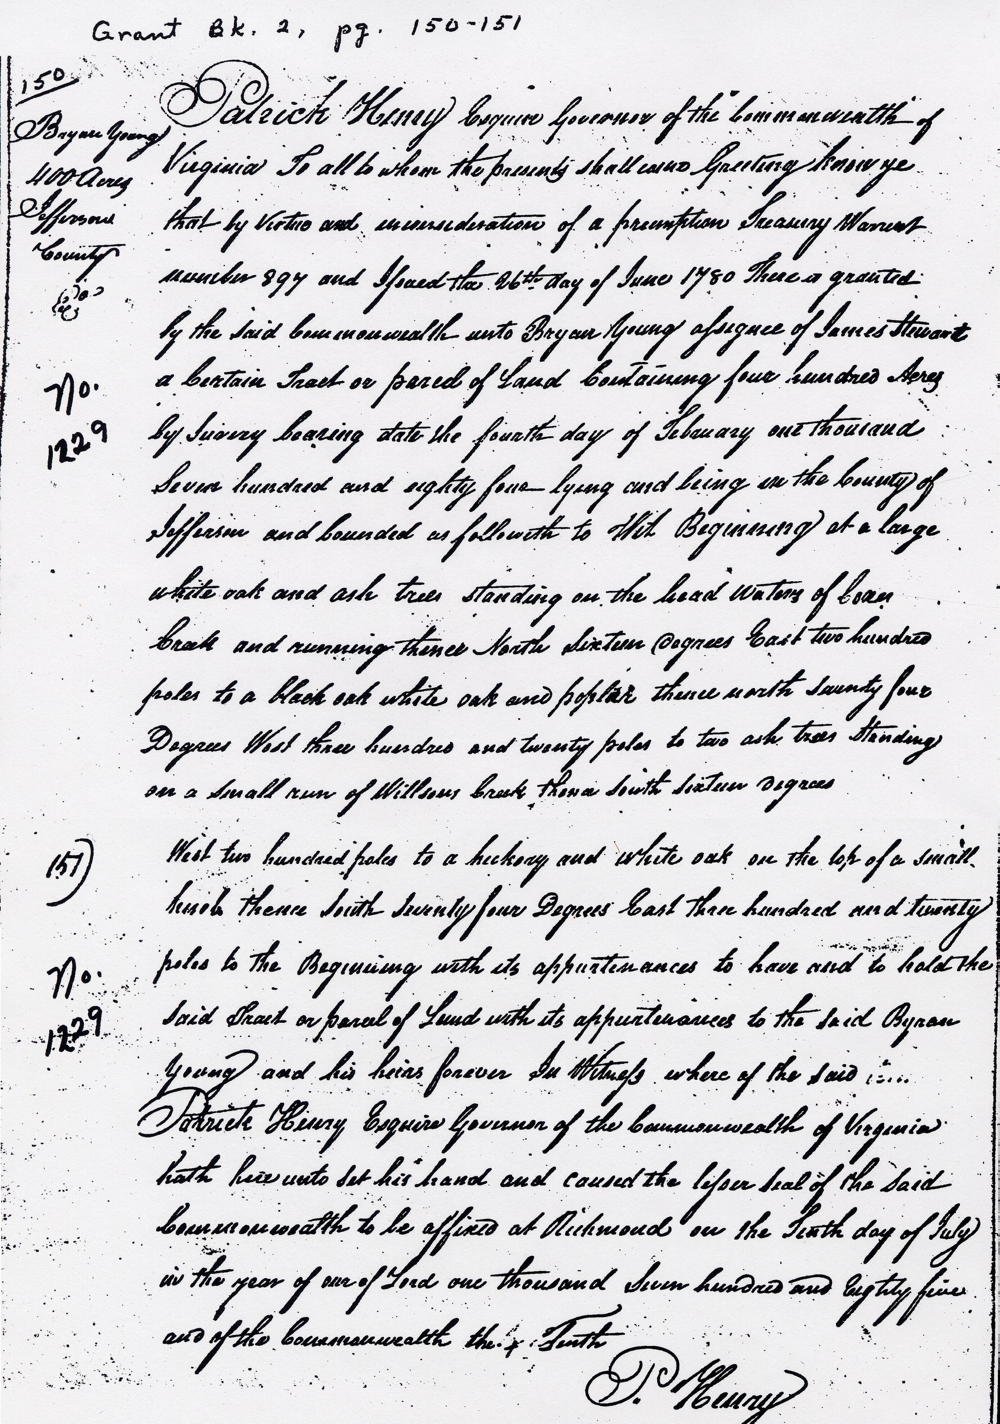 Grant Bk. 2, pg. 150-151
150
Bryan Young
400 Acres
Jefferson
County
No.
1229
Patrick Henry Esquire Governor of the Commonwealth of
Virginia To all to whom the presents shall come Greeting know ye
that by Virtue and inconsideration of a preemption Treasury Warrent
number 897 and Issued the 26th day of June 1780 There a granted
by the said Commonwealth unto Bryan Young assignee of James Stewart
a Certain Tract or parcel of Land Containing four hundred Acres
by Survey bearing date the fourth day of February one thousand
Seven hundred and eighty four lying and being in the County of
Jefferson and bounded as followeth to Wit Beginning at a large
white oak and ash trees standing on the head Waters of
Creek and running thence North Sixteen Degrees East two hundred
poles to a black oak white oak and poplar thence north Seventy four
Degrees West three hundred and twenty poles to two ash trees Standing
on a small run of Willsons Creek thence South Sixteen Degrees
151)
No.
1229
West two hundred poles to a hickory and white oak on the top of a small
knob thence South Seventy four Degrees East three hundred and twenty
poles to the Beginning with its appurtenances to have and to hold the
said Tract or parcel of Land with its appurtenances to the said Byran
Young and his heirs forever In Witness where of the said
Patrick Henry Esquire Governor of the Commonwealth of Virginia
hath here unto set his hand and caused the lesser Seal of the Said
Commonwealth to be affixed at Richmond on the Tenth day of July
in the year of our of Lord one thousand Seven hundred and Eighty five
and of the Commonwealth the Tenth
P. Henry